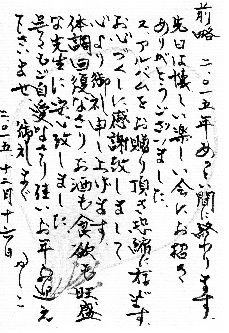 前略 二〇一五年あと僅に終わります
先日は懐しい楽しい会にお招き
ありがとうございました
アルバムをお贈り頂き恐縮に存じます
お心づくしに感謝致しまして
心より御礼申し上げます
体調回復なさりお酒も食欲も旺盛
な先生に安心致しました
呉々もご自愛なさり佳いお年お迎え
下さいませ 御礼まで
二〇一五 十二月十六日